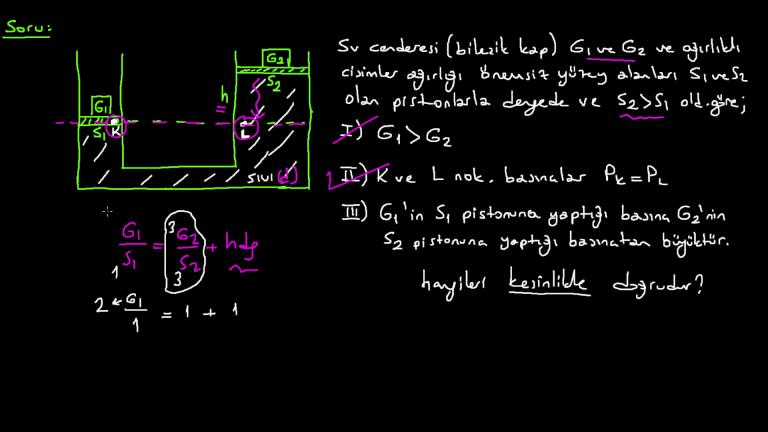 Soru:
Su cenderesi (bileşik kap) G1 ve G2 ve ağırlıklı
cisimler ağırlığı önemsiz yüzey alanları S1 ve S2
olan pistonlarla dengede ve S2>S1 old. göre;
I) G1 > G2
II) K ve L nok. basınçlar PK = PL
III) G1'in S1 pistonuna yaptığı basınç G2'nin
S2 pistonuna yaptığı basınçtan büyüktür.
hangileri kesinlikle doğrudur?
G1
S1
K
G2
S2
h
L
SIVI (d)
G1/S1 = G2/S2 + hdg
1
3
3
2 ← G1/1 = 1 + 1